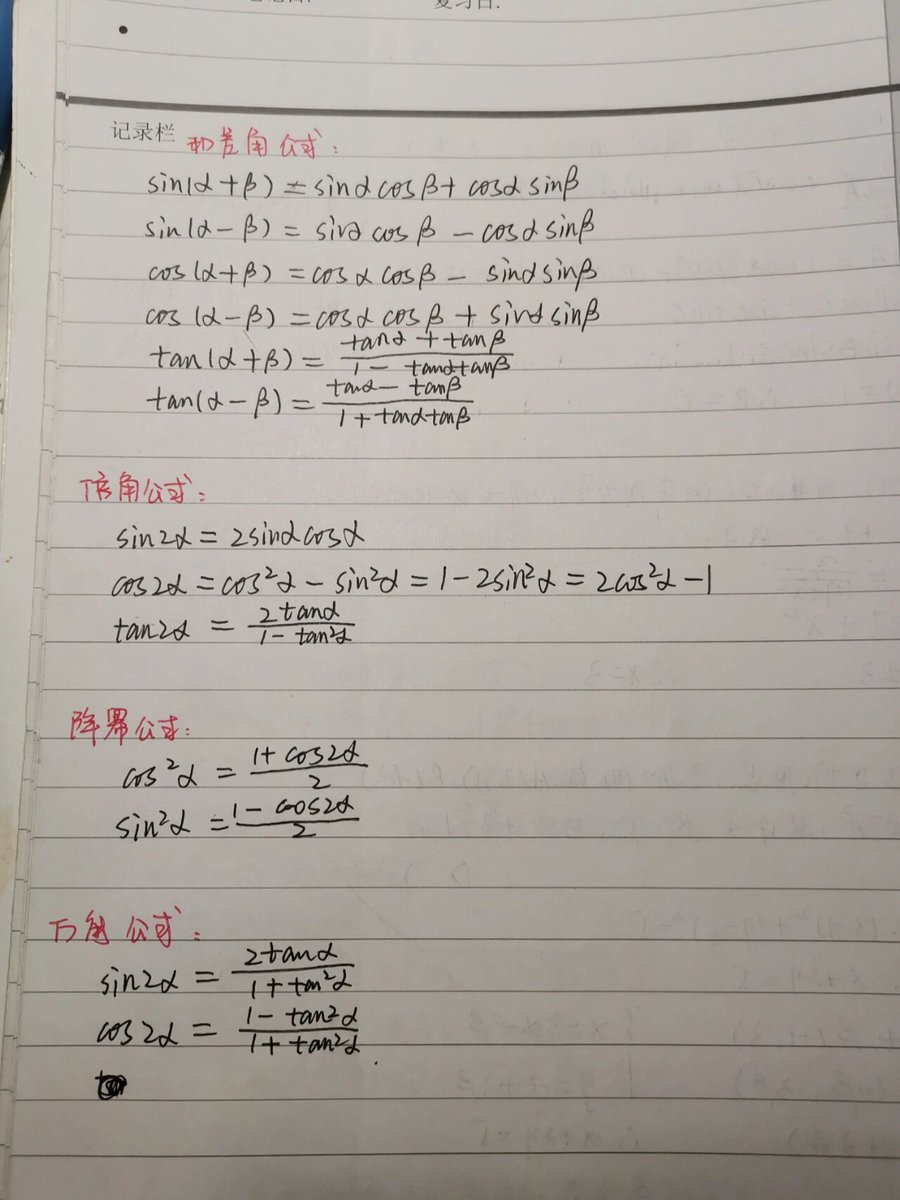 复习日:
•
记录栏 和差角公式:
sin(α+β) = sinα cosβ + cosα sinβ
sin(α-β) = sinα cosβ - cosα sinβ
cos(α+β) = cosα cosβ - sinα sinβ
cos(α-β) = cosα cosβ + sinα sinβ
tan(α+β) = (tanα + tanβ)/(1 - tanα tanβ)
tan(α-β) = (tanα - tanβ)/(1 + tanα tanβ)
倍角公式:
sin2α = 2sinα cosα
cos2α = cos²α - sin²α = 1 - 2sin²α = 2cos²α - 1
tan2α = 2tanα/(1 - tan²α)
降幂公式:
cos²α = (1 + cos2α)/2
sin²α = (1 - cos2α)/2
万角公式:
sin2α = 2tanα/(1 + tan²α)
cos2α = (1 - tan²α)/(1 + tan²α)